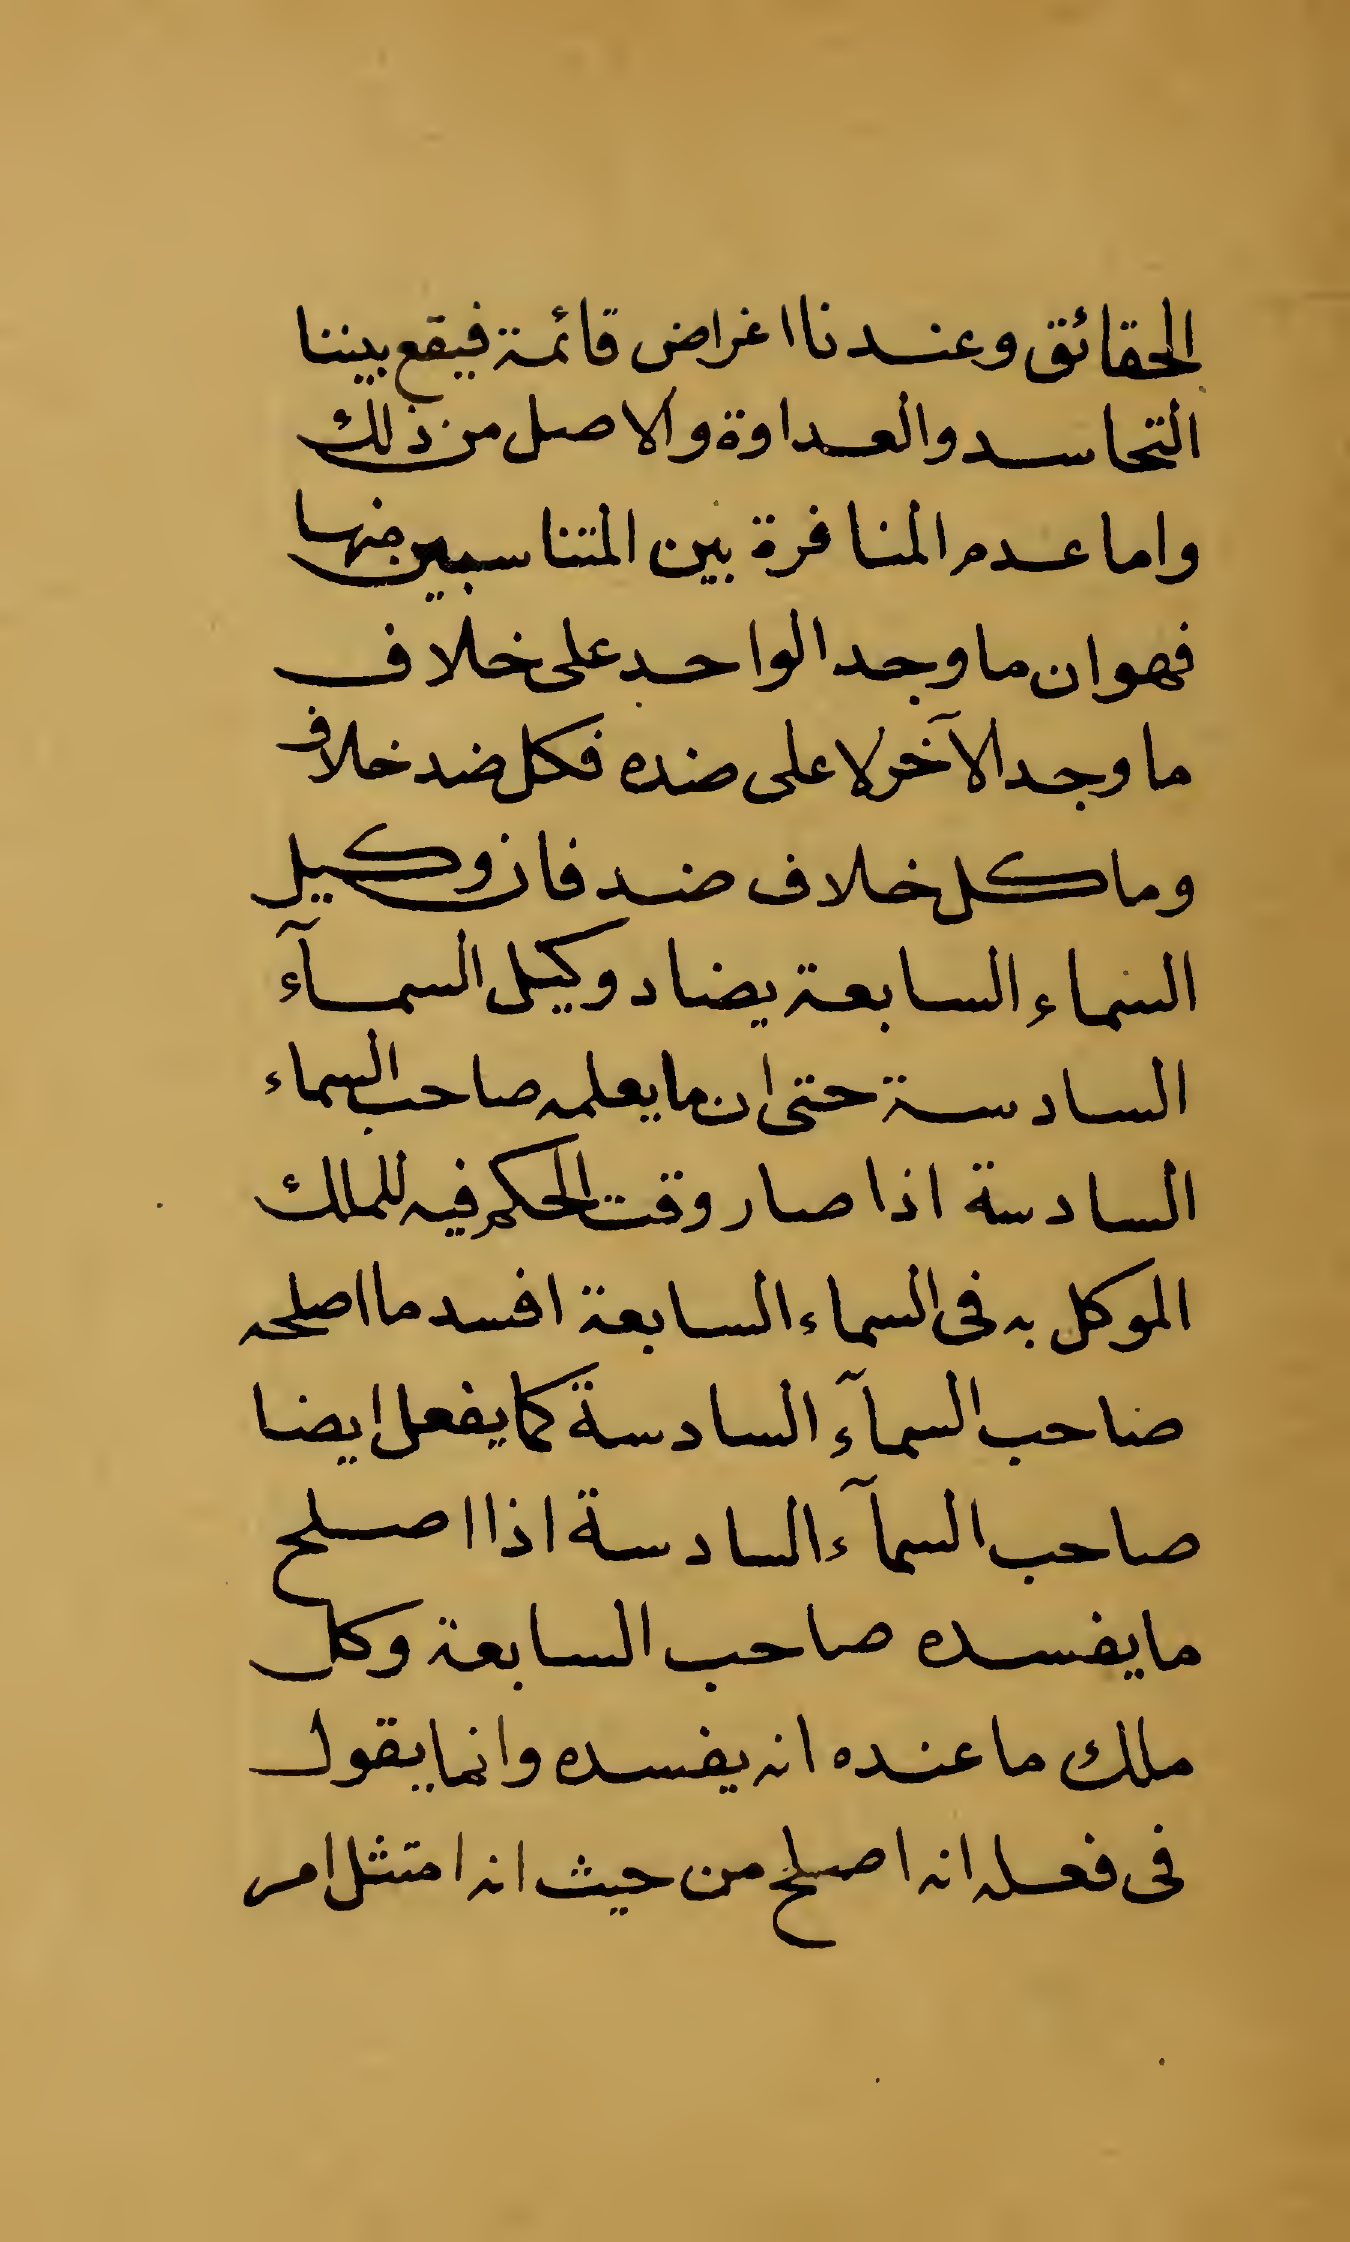 الحقائق وعندنا اغراض قائمة فيقع بيننا
التحاسد والعداوة والاصل من ذلك
واما عدم المنافرة بين المتناسبين منها
فهو ان ما وجد الواحد على خلاف
ما وجد الآخر لا على ضده فكل ضد خلاف
وما كل خلاف ضد فان وكيل
السماء السابعة يضاد وكيل السمآء
السادسة حتى ان ما يعلمه صاحب السماء
السادسة اذا صار وقت الحكم فيه للملك
الموكل به فى السماء السابعة افسد ما اصلحه
صاحب السمآء السادسة كما يفعل ايضا
صاحب السمآء السادسة اذا اصلح
ما يفسده صاحب السابعة وكل
ملك ما عنده انه يفسده وانما يقول
فى فعله انه اصلح من حيث انه امتثل امر